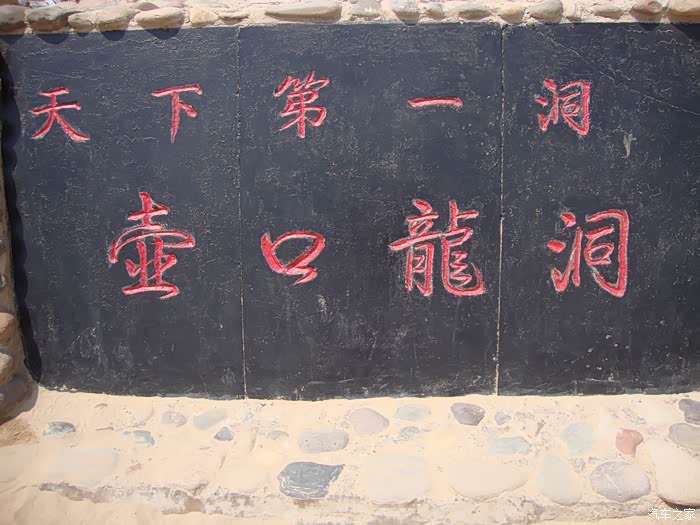 天下第一洞
壶口龍洞
汽车之家